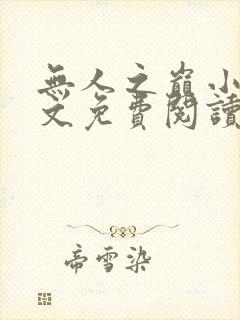 無人之巔小
文免費閱讀
帝雪染